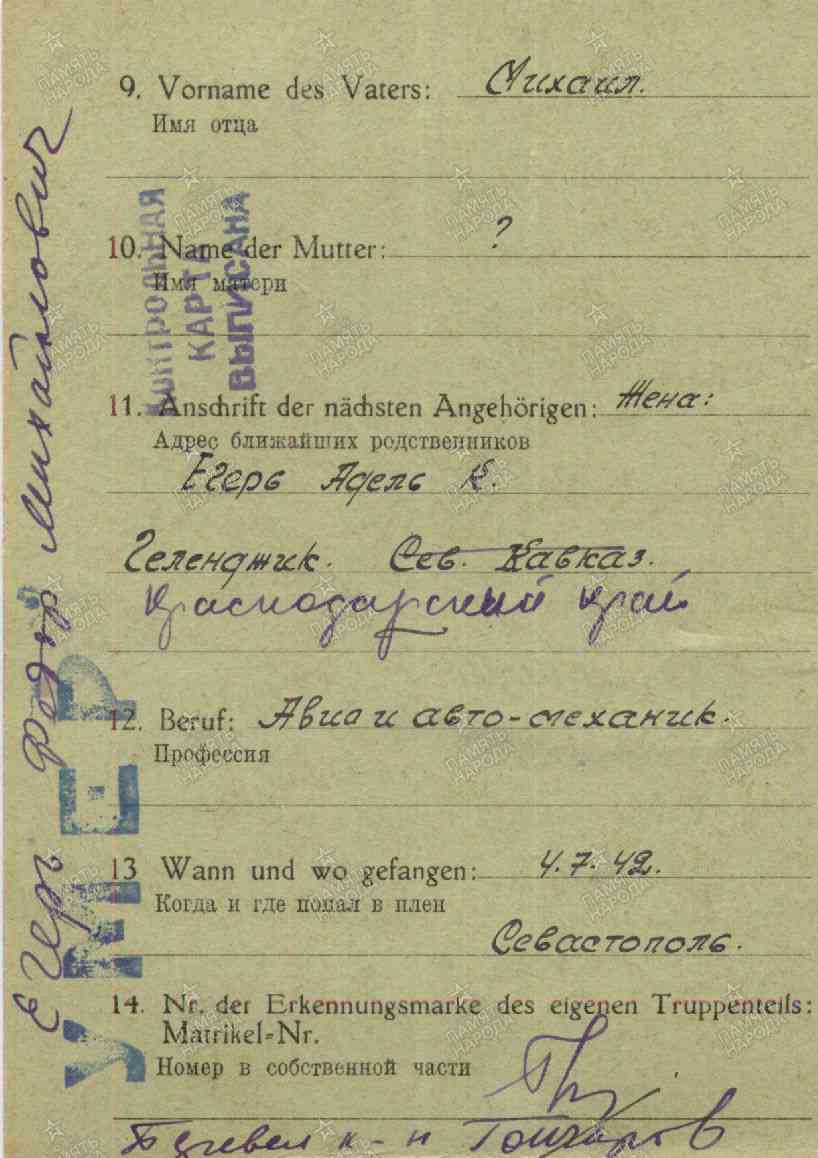 9. Vorname des Vaters: Михаил.
Имя отца
10. Name der Mutter: ?
Имя матери
КОНТРОЛЬНАЯ
КАРТА
ВЫПИСАНА
11. Anschrift der nächsten Angehörigen: Жена:
Адрес ближайших родственников
Егерь Адель К.
Геленджик. Сев. Кавказ.
Краснодарский край
12. Beruf: Авиа и авто-механик.
Профессия
13 Wann und wo gefangen: 4.7.42.
Когда и где попал в плен
Севастополь.
14. Nr. der Erkennungsmarke des eigenen Truppenteils:
Matrikel=Nr.
Номер в собственной части
к-н Гончаров
Егерь Федор Михайлович
УМЕР
ПАМЯТЬ
НАРОДА